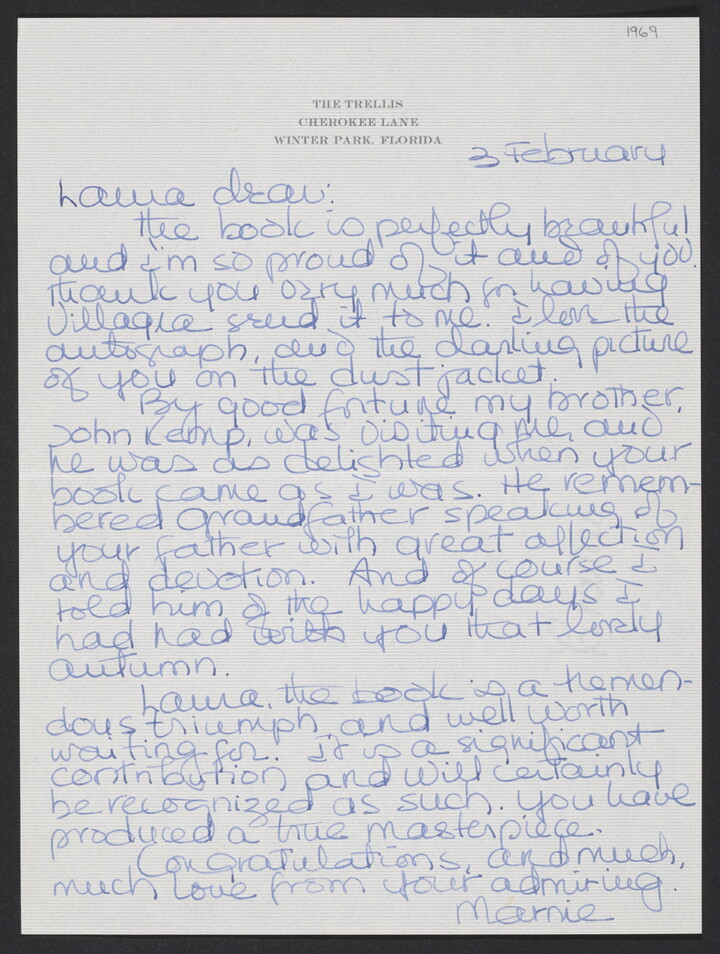 1969
THE TRELLIS
CHEROKEE LANE
WINTER PARK, FLORIDA
3 February
Laura dear:
The book is perfectly beautiful
and I'm so proud of it and of you.
Thank you very much for having
Villagra send it to me. I love the
autograph, and the darling picture
of you on the dust jacket.
By good fortune my brother,
John Kemp, was visiting me, and
he was as delighted when your
book came as I was. He remem-
bered Grandfather speaking of
your father with great affection
and devotion. And of course I
told him of the happy days I
had had with you that lovely
autumn.
Laura, the book is a tremen-
dous triumph, and well worth
waiting for. It is a significant
contribution and will certainly
be recognized as such. You have
produced a true masterpiece.
Congratulations, and much,
much love from your admiring
Marnie